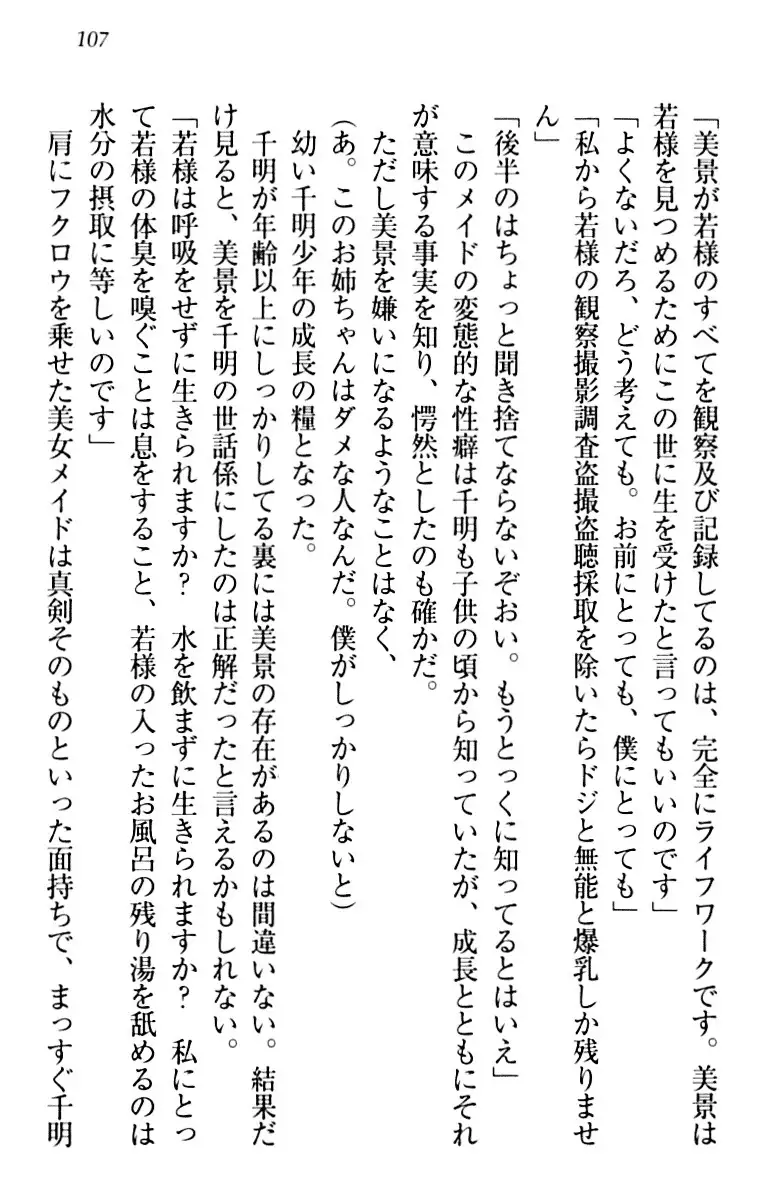 107
「美景が若様のすべてを観察及び記録してるのは、完全にライフワークです。美景は
若様を見つめるためにこの世に生を受けたと言ってもいいのです」
「よくないだろ、どう考えても。お前にとっても、僕にとっても」
「私から若様の観察撮影調査盗撮盗聴採取を除いたらドジと無能と爆乳しか残りませ
ん」
「後半のはちょっと聞き捨てならないぞおい。もうとっくに知ってるとはいえ」
このメイドの変態的な性癖は千明も子供の頃から知っていたが、成長とともにそれ
が意味する事実を知り、愕然としたのも確かだ。
ただし美景を嫌いになるようなことはなく、
(あ。このお姉ちゃんはダメな人なんだ。僕がしっかりしないと)
幼い千明少年の成長の糧となった。
千明が年齢以上にしっかりしてる裏には美景の存在があるのは間違いない。結果だ
け見ると、美景を千明の世話係にしたのは正解だったと言えるかもしれない。
「若様は呼吸をせずに生きられますか?　水を飲まずに生きられますか?　私にとっ
て若様の体臭を嗅ぐことは息をすること、若様の入ったお風呂の残り湯を舐めるのは
水分の摂取に等しいのです」
肩にフクロウを乗せた美女メイドは真剣そのものといった面持ちで、まっすぐ千明